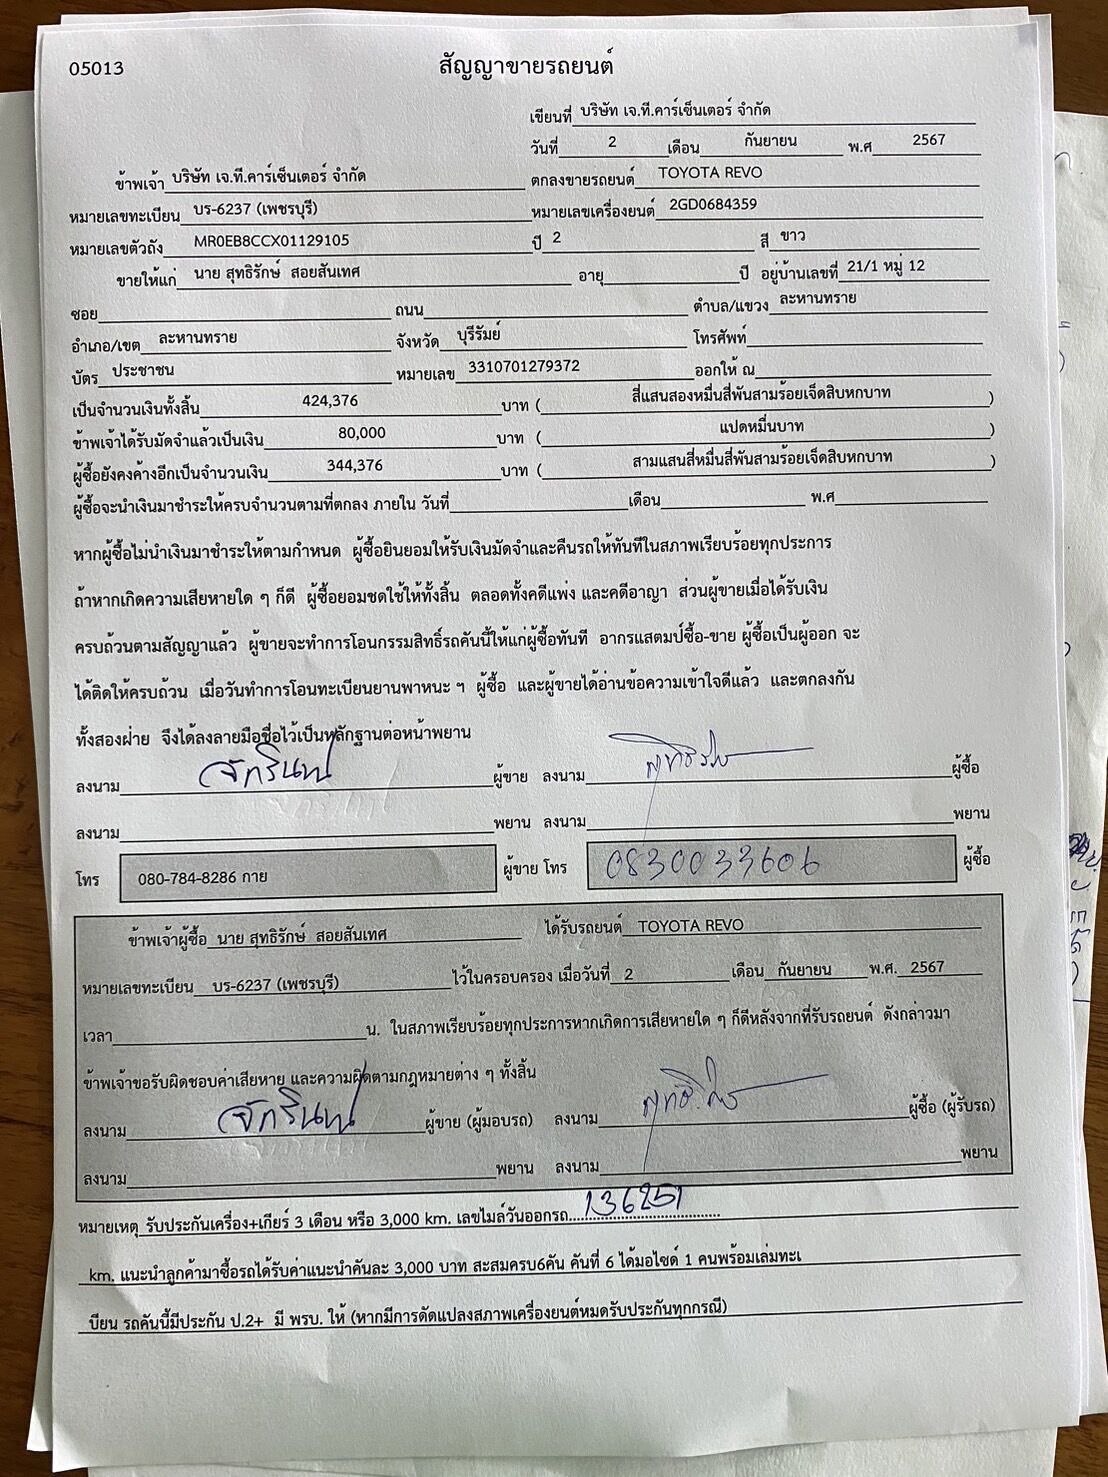 05013
สัญญาขายรถยนต์
เขียนที่ บริษัท เจ.ที.คาร์เซ็นเตอร์ จำกัด
วันที่ 2 เดือน กันยายน พ.ศ 2567
ข้าพเจ้า บริษัท เจ.ที.คาร์เซ็นเตอร์ จำกัด ตกลงขายรถยนต์ TOYOTA REVO
หมายเลขทะเบียน บร-6237 (เพชรบุรี) หมายเลขเครื่องยนต์ 2GD0684359
หมายเลขตัวถัง MR0EB8CCX01129105 ปี 2 สี ขาว
ขายให้แก่ นาย สุทธิรักษ์ สอยสันเทศ อายุ ปี อยู่บ้านเลขที่ 21/1 หมู่ 12
ซอย ถนน ตำบล/แขวง ละหานทราย
อำเภอ/เขต ละหานทราย จังหวัด บุรีรัมย์ โทรศัพท์
บัตร ประชาชน หมายเลข 3310701279372 ออกให้ ณ
เป็นจำนวนเงินทั้งสิ้น 424,376 บาท ( สี่แสนสองหมื่นสี่พันสามร้อยเจ็ดสิบหกบาท )
ข้าพเจ้าได้รับมัดจำแล้วเป็นเงิน 80,000 บาท ( แปดหมื่นบาท )
ผู้ซื้อยังคงค้างอีกเป็นจำนวนเงิน 344,376 บาท ( สามแสนสี่หมื่นสี่พันสามร้อยเจ็ดสิบหกบาท )
ผู้ซื้อจะนำเงินมาชำระให้ครบจำนวนตามที่ตกลง ภายใน วันที่ เดือน พ.ศ
หากผู้ซื้อไม่นำเงินมาชำระให้ตามกำหนด ผู้ซื้อยินยอมให้รับเงินมัดจำและคืนรถให้ทันทีในสภาพเรียบร้อยทุกประการ
ถ้าหากเกิดความเสียหายใด ๆ ก็ดี ผู้ซื้อยอมชดใช้ให้ทั้งสิ้น ตลอดทั้งคดีแพ่ง และคดีอาญา ส่วนผู้ขายเมื่อได้รับเงิน
ครบถ้วนตามสัญญาแล้ว ผู้ขายจะทำการโอนกรรมสิทธิ์รถคันนี้ให้แก่ผู้ซื้อทันที อากรแสตมป์ซื้อ-ขาย ผู้ซื้อเป็นผู้ออก จะ
ได้ติดให้ครบถ้วน เมื่อวันทำการโอนทะเบียนยานพาหนะ ฯ ผู้ซื้อ และผู้ขายได้อ่านข้อความเข้าใจดีแล้ว และตกลงกัน
ทั้งสองฝ่าย จึงได้ลงลายมือชื่อไว้เป็นหลักฐานต่อหน้าพยาน
ลงนาม จักรินทร์ ผู้ขาย ลงนาม ผู้ซื้อ
ลงนาม พยาน ลงนาม พยาน
โทร 080-784-8286 กาย ผู้ขาย โทร 0830033606 ผู้ซื้อ
ข้าพเจ้าผู้ซื้อ นาย สุทธิรักษ์ สอยสันเทศ ได้รับรถยนต์ TOYOTA REVO
หมายเลขทะเบียน บร-6237 (เพชรบุรี) ไว้ในครอบครอง เมื่อวันที่ 2 เดือน กันยายน พ.ศ. 2567
เวลา น. ในสภาพเรียบร้อยทุกประการหากเกิดการเสียหายใด ๆ ก็ดีหลังจากที่รับรถยนต์ ดังกล่าวมา
ข้าพเจ้าขอรับผิดชอบค่าเสียหาย และความผิดตามกฎหมายต่าง ๆ ทั้งสิ้น
ลงนาม จักรินทร์ ผู้ขาย (ผู้มอบรถ) ลงนาม ผู้ซื้อ (ผู้รับรถ)
ลงนาม พยาน ลงนาม พยาน
หมายเหตุ รับประกันเครื่อง+เกียร์ 3 เดือน หรือ 3,000 km. เลขไมล์วันออกรถ 136251
km. แนะนำลูกค้ามาซื้อรถได้รับค่าแนะนำคันละ 3,000 บาท สะสมครบ6คัน คันที่ 6 ได้มอไซด์ 1 คนพร้อมเล่มทะเ
บียน รถคันนี้มีประกัน ป.2+ มี พรบ. ให้ (หากมีการดัดแปลงสภาพเครื่องยนต์หมดรับประกันทุกกรณี)